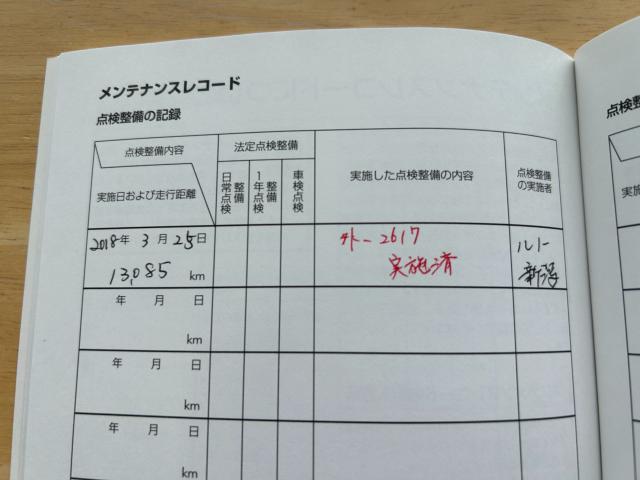 メンテナンスレコード
点検整備の記録
点検整備内容
実施日および走行距離
法定点検整備
日常点検整備
1年点検整備
車検点検
実施した点検整備の内容
点検整備の実施者
2018年 3月 25日
13,085 km
外-2617
実施済
ルノー
新潟
年 月 日
km
年 月 日
km
年 月 日
km
点検整
実施